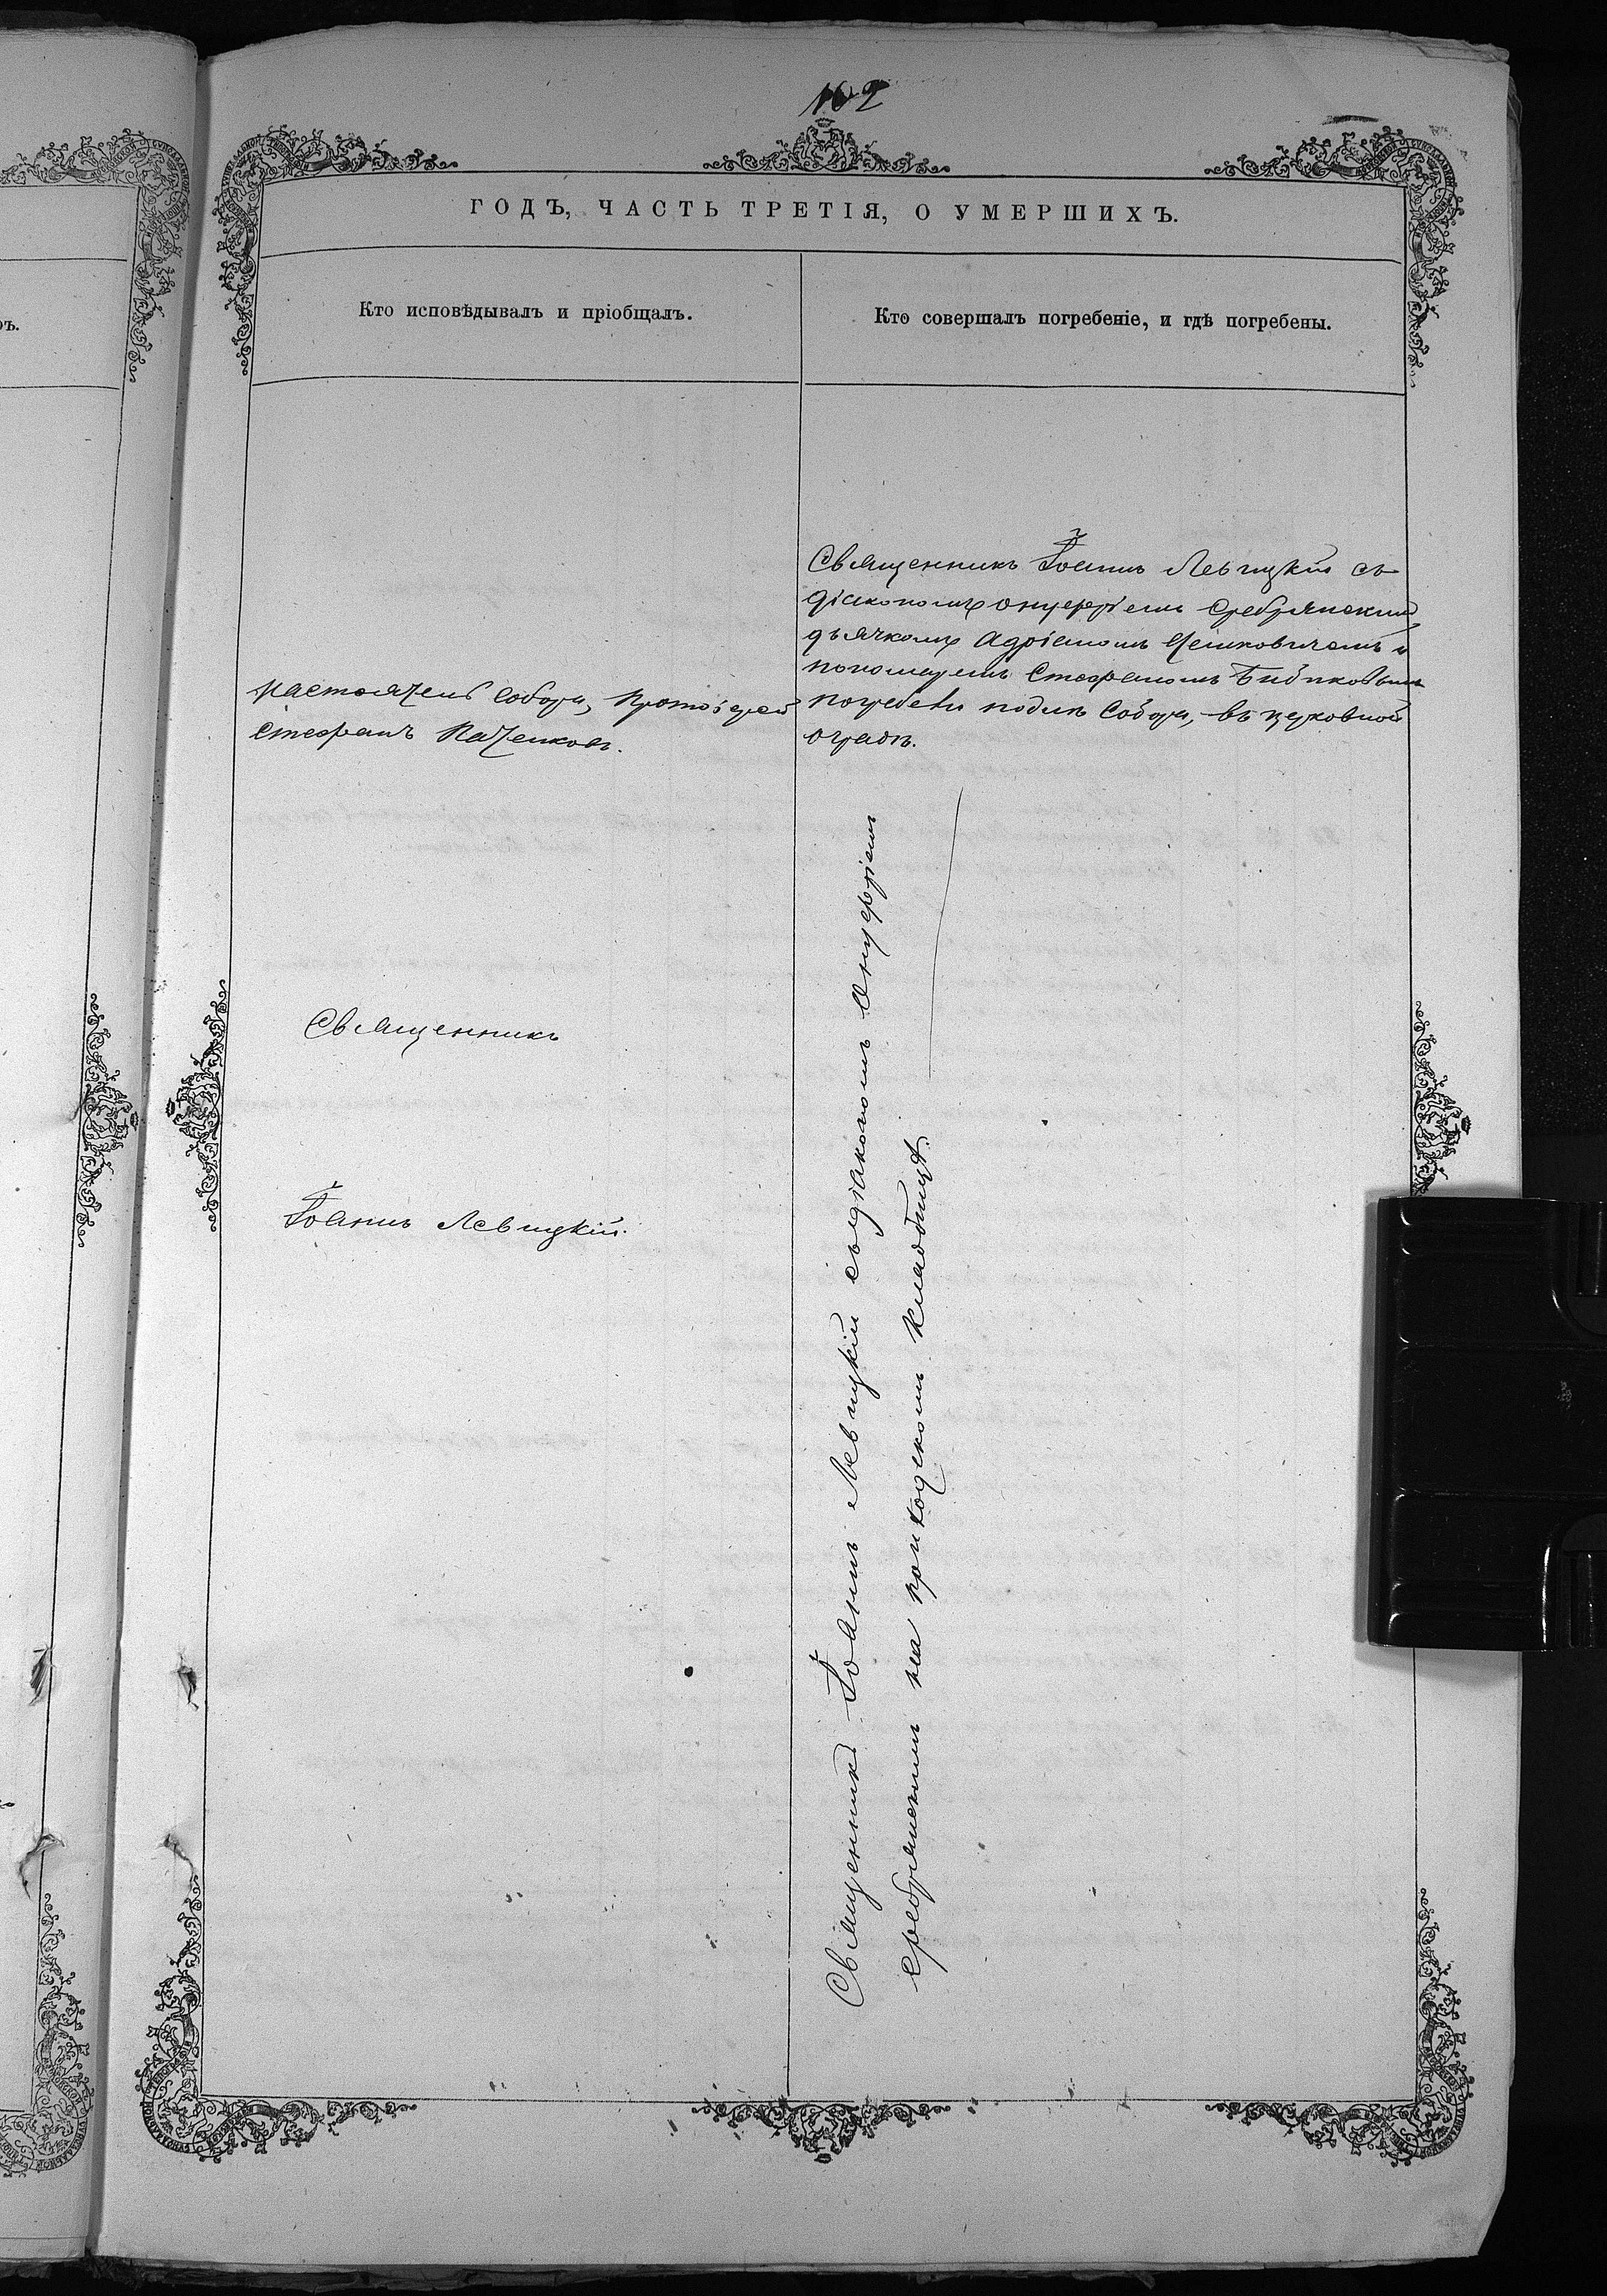 102
ГОДЪ, ЧАСТЬ ТРЕТІЯ, О УМЕРШИХЪ.
Кто исповѣдывалъ и пріобщалъ.
Кто совершалъ погребеніе, и гдѣ погребены.
Священникъ Іоаннъ Левицкій съ
діакономъ Онуфріемъ Сребрянскимъ
дьячкомъ Адріаномъ и
пономаремъ Стефаномъ Бибиковымъ
погребенъ подлѣ Собора, въ церковной
оградѣ.
Настоятель Собора, Протоіерей
Стефанъ
Священникъ
Іоаннъ Левицкій.
Священникъ Іоаннъ Левицкій съ діакономъ Онуфріемъ
Сребрянскимъ на приходскомъ кладбищѣ.